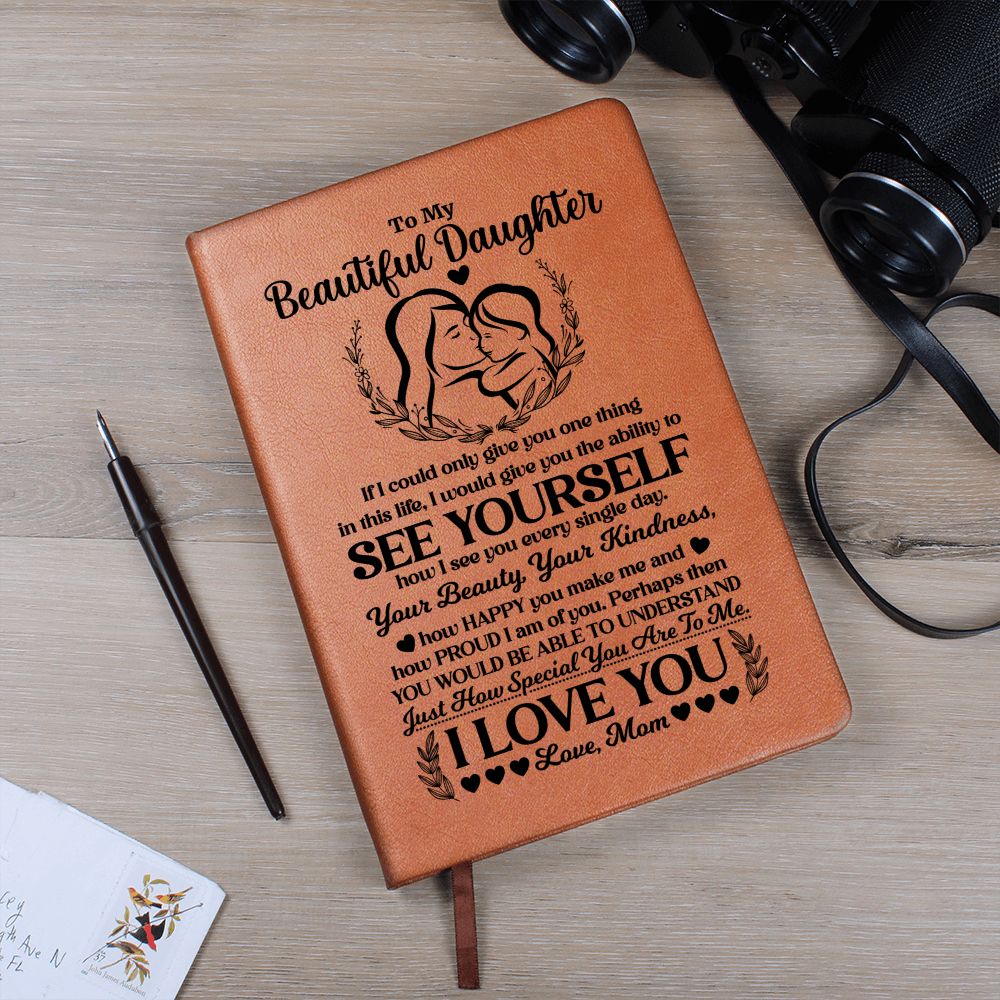 To My
Beautiful Daughter
If I could only give you one thing
in this life, I would give you the ability to
SEE YOURSELF
how I see you every single day.
Your Beauty, Your Kindness,
how HAPPY you make me and
how PROUD I am of you. Perhaps then
YOU WOULD BE ABLE TO UNDERSTAND
Just How Special You Are To Me.
I LOVE YOU
Love, Mom
Ave N
FL
37
John James Audubon